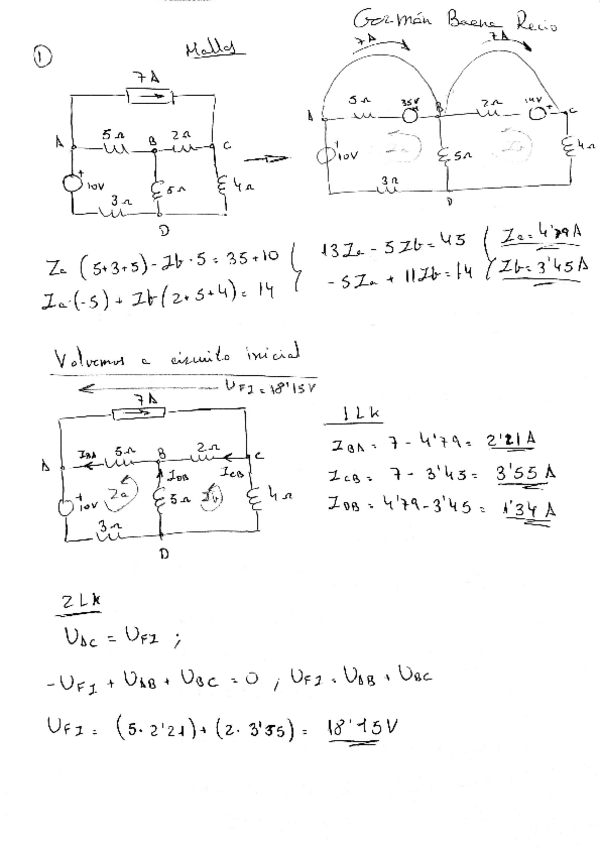 Germán Baena Recio
① Mallas
7A
7A 7A
A 5Ω B 2Ω C
10V 3Ω 5Ω 4Ω
D
A 5Ω 35V B 2Ω 14V C
10V 5Ω 4Ω
3Ω
D
Ia (5+3+5) - Ib·5 = 35+10
Ia·(-5) + Ib(2+5+4) = 14
13Ia - 5Ib = 45
-5Ia + 11Ib = 14
Ia = 4'79A
Ib = 3'45A
Volvemos a circuito inicial
UFI = 18'15V
7A
A IBA 5Ω B 2Ω C
IDB ICB
10V Ia 5Ω Ib 4Ω
3Ω
D
1LK
IBA = 7 - 4'79 = 2'21A
ICB = 7 - 3'45 = 3'55A
IDB = 4'79 - 3'45 = 1'34A
2LK
UAC = UFI ;
-UFI + UAB + UBC = 0 ; UFI = UAB + UBC
UFI = (5·2'21) + (2·3'55) = 18'15V